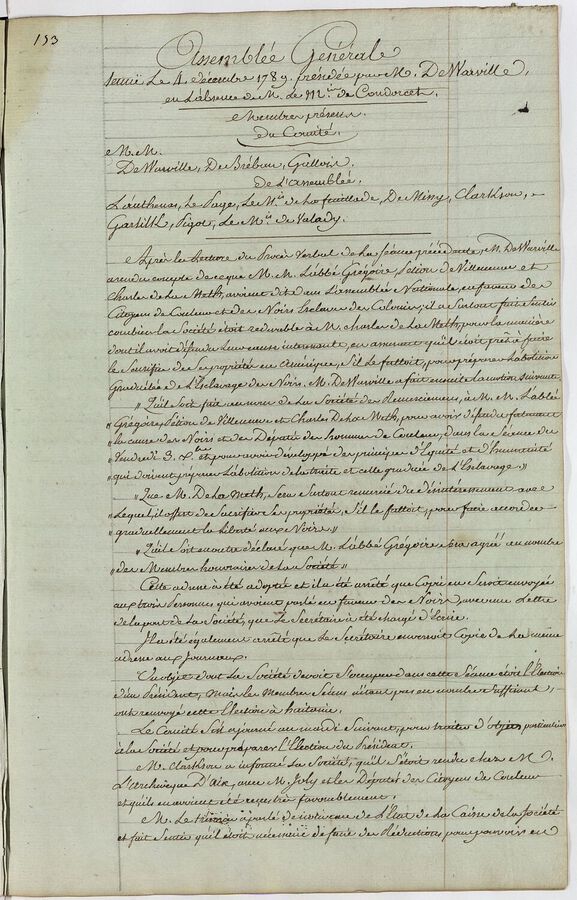 153
Assemblée Générale
tenue Le 4 decembre 1789. présidée par M. DeWarville,
en L'absence de M. Le M.is de Condorcet.
Membres présens.
du Comité.
M.M.
DeWarville, DeBréban, Gallois.
de L'assemblée.
Lanthenas, Le Page, Le M.is de La feuillade, DeMissy, Clarkson,
Pigot, Le M.is de Valady.
Après la Lecture du Procès Verbal de La séance précédente, M. DeWarville
a rendu compte de ce que M.M. L'abbé Grégoire, Pétion de Villeneuve et
Charles de La Meth, avoient dit dans L'assemblée Nationale, en faveur des
Citoyens de Couleur et des Noirs Esclaves des Colonies; il a Surtout fait Sentir
combien La Société étoit redevable à M. Charles de La Meth, pour la manière
dont il avoit défendu leur cause interessante, en assurant qu'il étoit prêt à faire
le Sacrifice de Ses propriétés en Amérique, S'il le falloit, pour préparer l'abolition
Graduelle de l'Esclavage des Noirs. M. DeWarville a fait ensuite la motion suivante.
" Qu'il Soit fait au nom de la Société des Remerciemens, à M.M. L'abbé
" Grégoire, Pétion de Villeneuve et Charles De La Meth, pour avoir défendu
" la cause des Noirs et des Députés des hommes de Couleur, dans la Séance du
" Vendredi 3. X.bre et pour avoir développé des principes d'Equité et d'humanité
" qui doivent préparer L'abolition de la traite et celle graduée de L'Esclavage. "
" Que M. De La Meth, Sera Surtout remercié du désintéressement avec
" Lequel, il offert de Sacrifier Ses propriétés, S'il le falloit, pour faire accorder
" graduellement la Liberté aux Noirs "
" Qu'il Soit en outre déclaré que M. L'abbé Grégoire Sera agréé au nombre
" des Membres honoraires de la Société "
Cette adresse a été adoptée et il a été arrêté que Copie en Seroit envoyée
aux trois Personnes qui avoient parlé en faveur des Noirs, avec une Lettre
de la part de La Société, que Le Secrétaire a été chargé d'Ecrire.
Il a été également arrêté que Le Secrétaire enverroit Copie de La même
adresse aux Journaux.
Un objet dont La Société devoit S'occuper dans cette Séance étoit l'Election
d'un Président, mais les Membres Présens n'étant pas en nombre Suffisant,
ont renvoyé cette Election à huitaine.
Le Comité S'est ajourné au mardi Suivant, pour traiter d'objets particuliers
à la Société et pour préparer l'Election du Président.
M. Clarkson a informé La Société, qu'il S'étoit rendu chez M.
L'archevêque D'Aix, avec M. Joly et les Députés des Citoyens de Couleur
et qu'ils en avoient été reçus très favorablement.
M. Le a parlé de nouveau de L'Etat de La Caisse de la Société
et fait Sentir qu'il étoit nécessaire de faire des Réductions pour pourvoir en